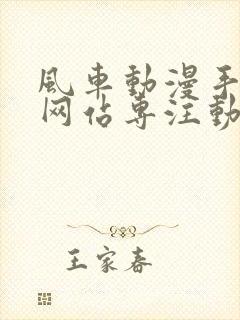 風車動漫手
网佔專注動
王家春